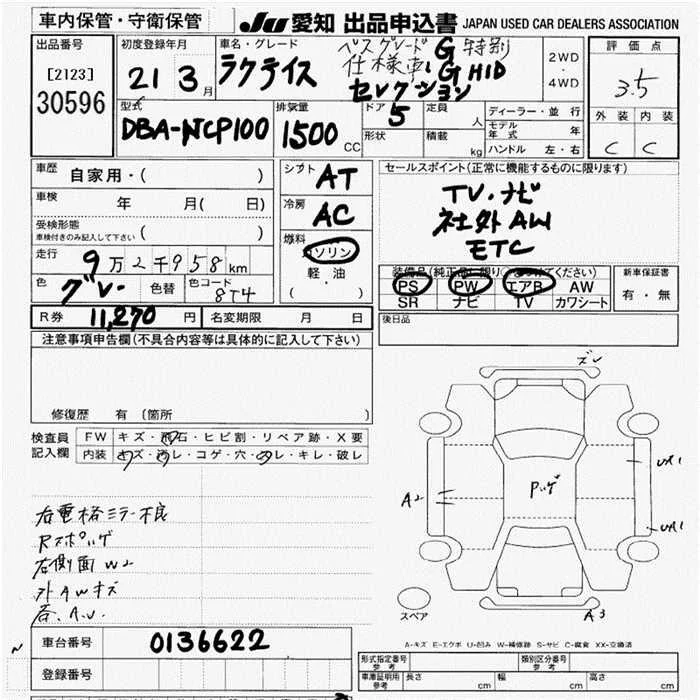 車内保管・守衛保管
JU 愛知 出品申込書 JAPAN USED CAR DEALERS ASSOCIATION
出品番号
[2123]
30596
初度登録年月
21 3月
車名・グレード
ラクティス
ベスグレード G 特別
仕様車 G HID
セレクション
2WD
・
4WD
評価点
3.5
外装 内装
C C
型式
DBA-NCP100
排気量
1500 CC
ドア
5
定員
人
形状
積載
kg
ディーラー・並行
モデル年式 年
ハンドル 左・右
車歴
自家用・( )
車検
年 月( 日)
受検形態
車検付きのみ記入して下さい ( )
走行
9万2千958km
色
グレー
色替
色コード
8T4
シフト
AT
冷房
AC
燃料
ガソリン
軽・油
( )
セールスポイント(正常に機能するものに限ります)
TV.ナビ
社外AW
ETC
装備品(純正品に限り○をつけてください)
PS PW エアB AW
SR ナビ TV カワシート
新車保証書
有・無
R券 11,270 円
名変期限 月 日
後日品
注意事項申告欄(不具合内容等は具体的に記入して下さい)
修復歴 有 〔箇所
検査員
記入欄
FW キズ・飛石・ヒビ割・リペア跡・X要
内装 キズ・汚レ・コゲ・穴・スレ・キレ・破レ
右電格ミラー不良
右側面W2
外AWキズ
各.A.U.
ズレ
A2
UA1
UA1
A3
スペア
A-キズ E-エクボ U-凹み W-補修跡 S-サビ C-腐食 XX-交換済
車台番号 0136622
登録番号
形式指定番号
参考
類別区分番号
参考
車庫証明用
参考
長さ cm 幅 cm 高さ cm